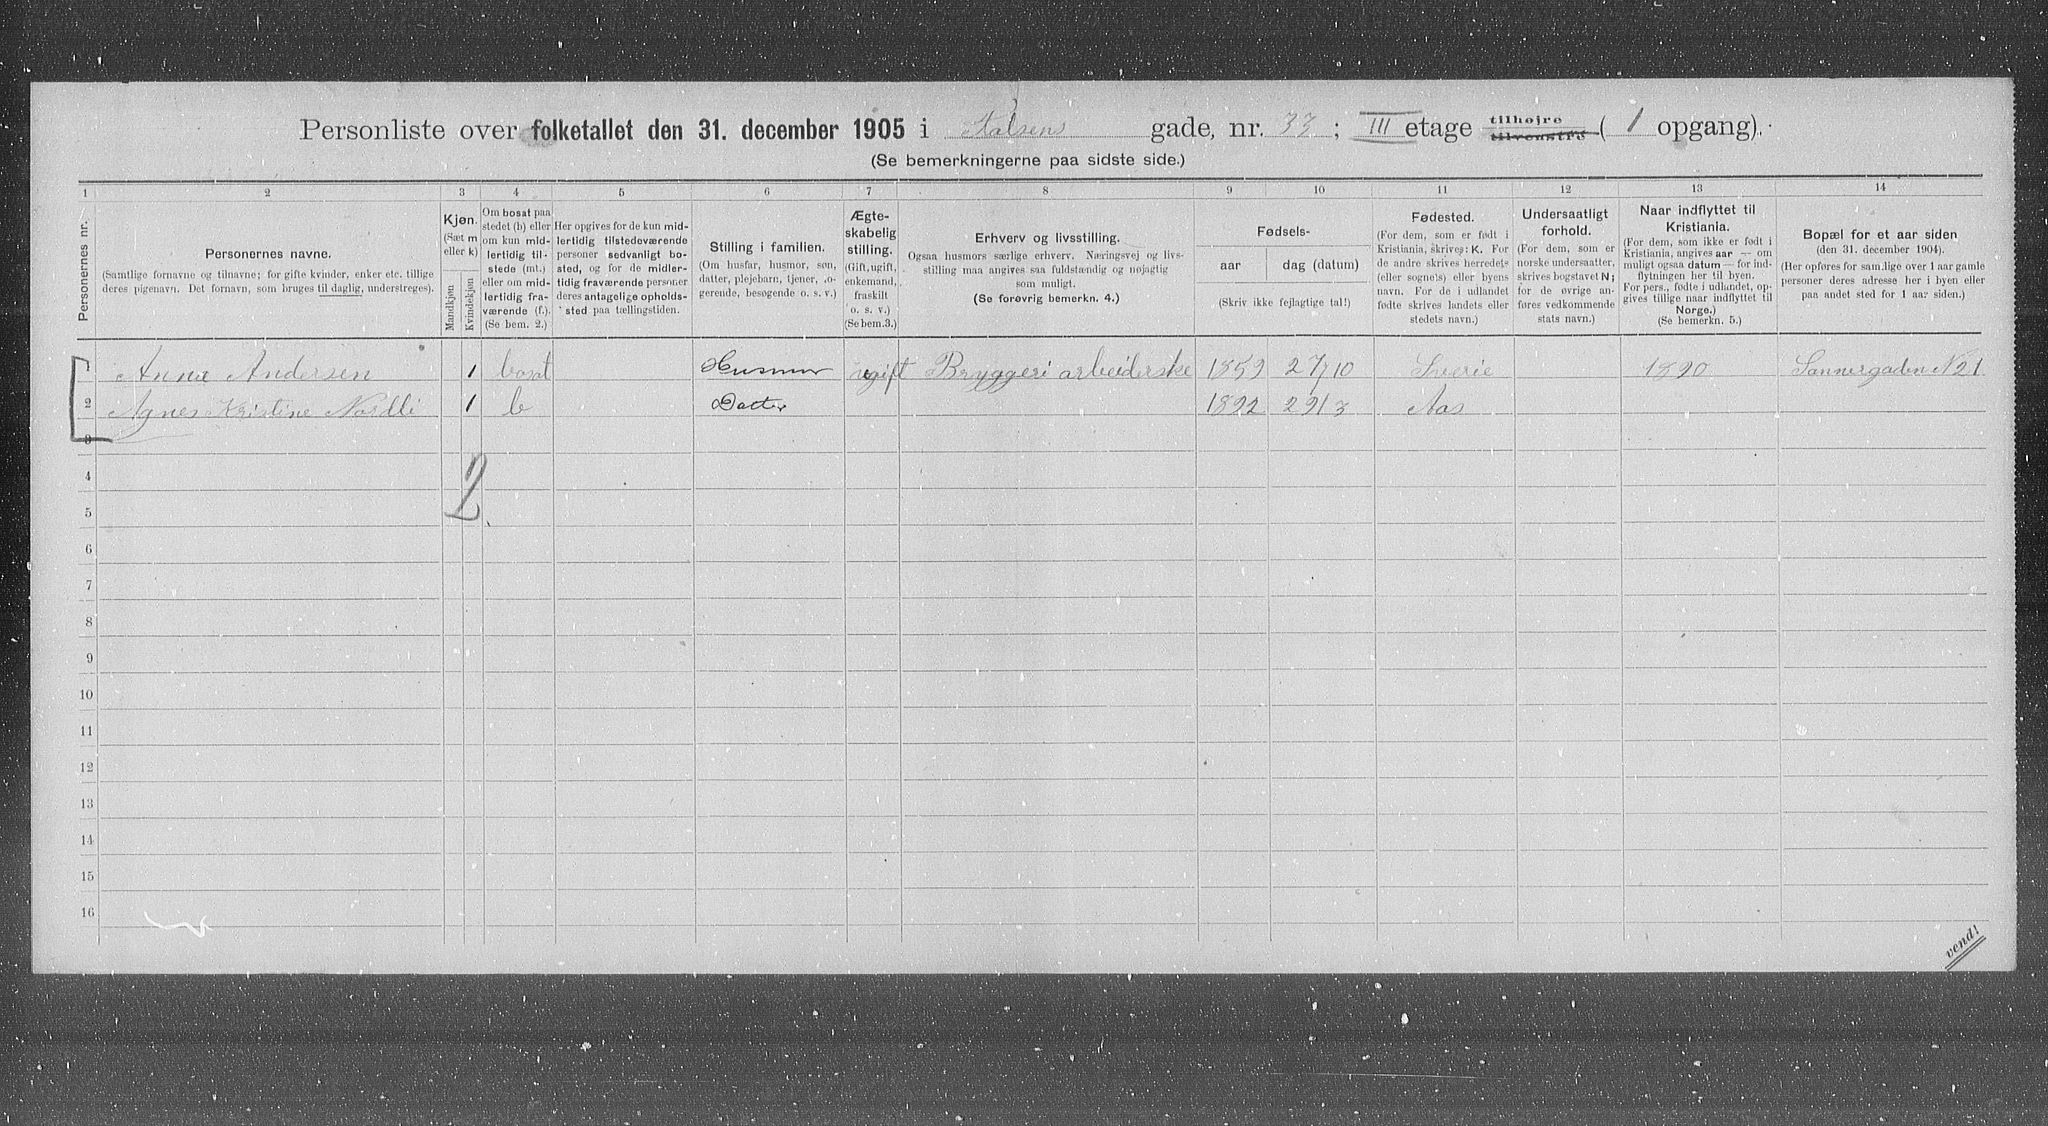 Personliste over folketallet den 31. december 1905 i Falsens gade, nr. 33; III etage tilhøjre tilvenstre ( 1 opgang).
(Se bemerkningerne paa sidste side.)
1 2 3 4 5 6 7 8 9 10 11 12 13 14
Personernes nr.
Personernes navne.
(Samtlige fornavne og tilnavne; for gifte kvinder, enker etc. tillige
deres pigenavn. Det fornavn, som bruges til daglig, understreges).
Kjøn.
(Sæt m
eller k)
Mandkjøn
Kvindekjøn
Om bosat paa
stedet (b) eller
om kun mid-
lertidig til-
stede (mt.)
eller om mid-
lertidig fra-
værende (f.).
(Se bem. 2.)
Her opgives for de kun mid-
lertidig tilstedeværende
personer sedvanligt bo-
sted, og for de midler-
tidig fraværende personer
deres antagelige opholds-
sted paa tællingstiden.
Stilling i familien.
(Om husfar, husmor, søn,
datter, plejebarn, tjener, lo-
gerende, besøgende o. s. v.)
Ægte-
skabelig
stilling.
(Gift, ugift,
enkemand,
fraskilt
o. s. v.)
(Se bem.3.)
Erhverv og livsstilling.
Ogsaa husmors særlige erhverv. Næringsvej og livs-
stilling maa angives saa fuldstændig og nøjagtig
som muligt.
(Se forøvrig bemerkn. 4.)
Fødsels-
aar dag (datum)
(Skriv ikke fejlagtige tal!)
Fødested.
(For dem, som er født i
Kristiania, skrives: K. For
de andre skrives herredets
(eller sognets) eller byens
navn. For de i udlandet
fødte skrives landets eller
stedets navn.)
Undersaatligt
forhold.
(For dem, som er
norske undersaatter,
skrives bogstavet N;
for de øvrige an-
føres vedkommende
stats navn.)
Naar indflyttet til
Kristiania.
(For dem, som ikke er født i
Kristiania, angives aar — om
muligt ogsaa datum — for ind-
flytningen her til byen.
For pers., fødte i udlandet, op-
gives tillige naar indflyttet til
Norge.)
(Se bemerkn. 5.)
Bopæl for et aar siden
(den 31. december 1904).
(Her opføres for samtlige over 1 aar gamle
personer deres adresse her i byen eller
paa andet sted for 1 aar siden.)
1 Anna Andersen 1 bosat Husmor ugift Bryggeri arbeiderske 1859 27/10 Sverie 1890 Sannergaden N 21
2 Agnes Kristine Nordli 1 b Datter 1892 29/3 Aas
3
4
2
5
6
7
8
9
10
11
12
13
14
15
16
vend!